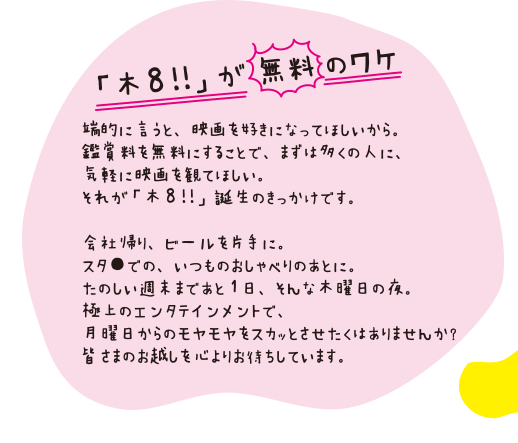 「木8!!」が無料のワケ
端的に言うと、映画を好きになってほしいから。
鑑賞料を無料にすることで、まずは多くの人に、
気軽に映画を観てほしい。
それが「木8!!」誕生のきっかけです。
会社帰り、ビールを片手に。
スタ●での、いつものおしゃべりのあとに。
たのしい週末まであと1日、そんな木曜日の夜。
極上のエンタテインメントで、
月曜日からのモヤモヤをスカッとさせたくはありませんか?
皆さまのお越しを心よりお待ちしています。